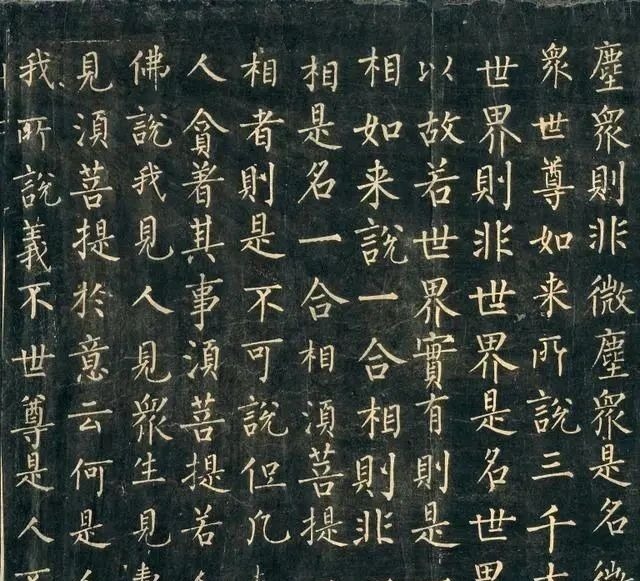 塵衆則非微塵衆是名微
衆世尊如来所說三千大
世界則非世界是名世界
以故若世界實有則是
相如来說一合相則非
相是名一合相須菩提
相者則是不可說但凡
人貪著其事須菩提若
佛說我見人見衆生見壽
見須菩提於意云何是
我所說義不世尊是人不